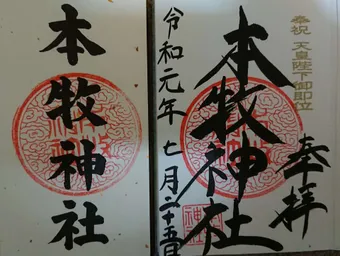 奉祝 天皇陛下御即位
奉拝
本牧神社
令和元年 七月二十五日
本牧神社